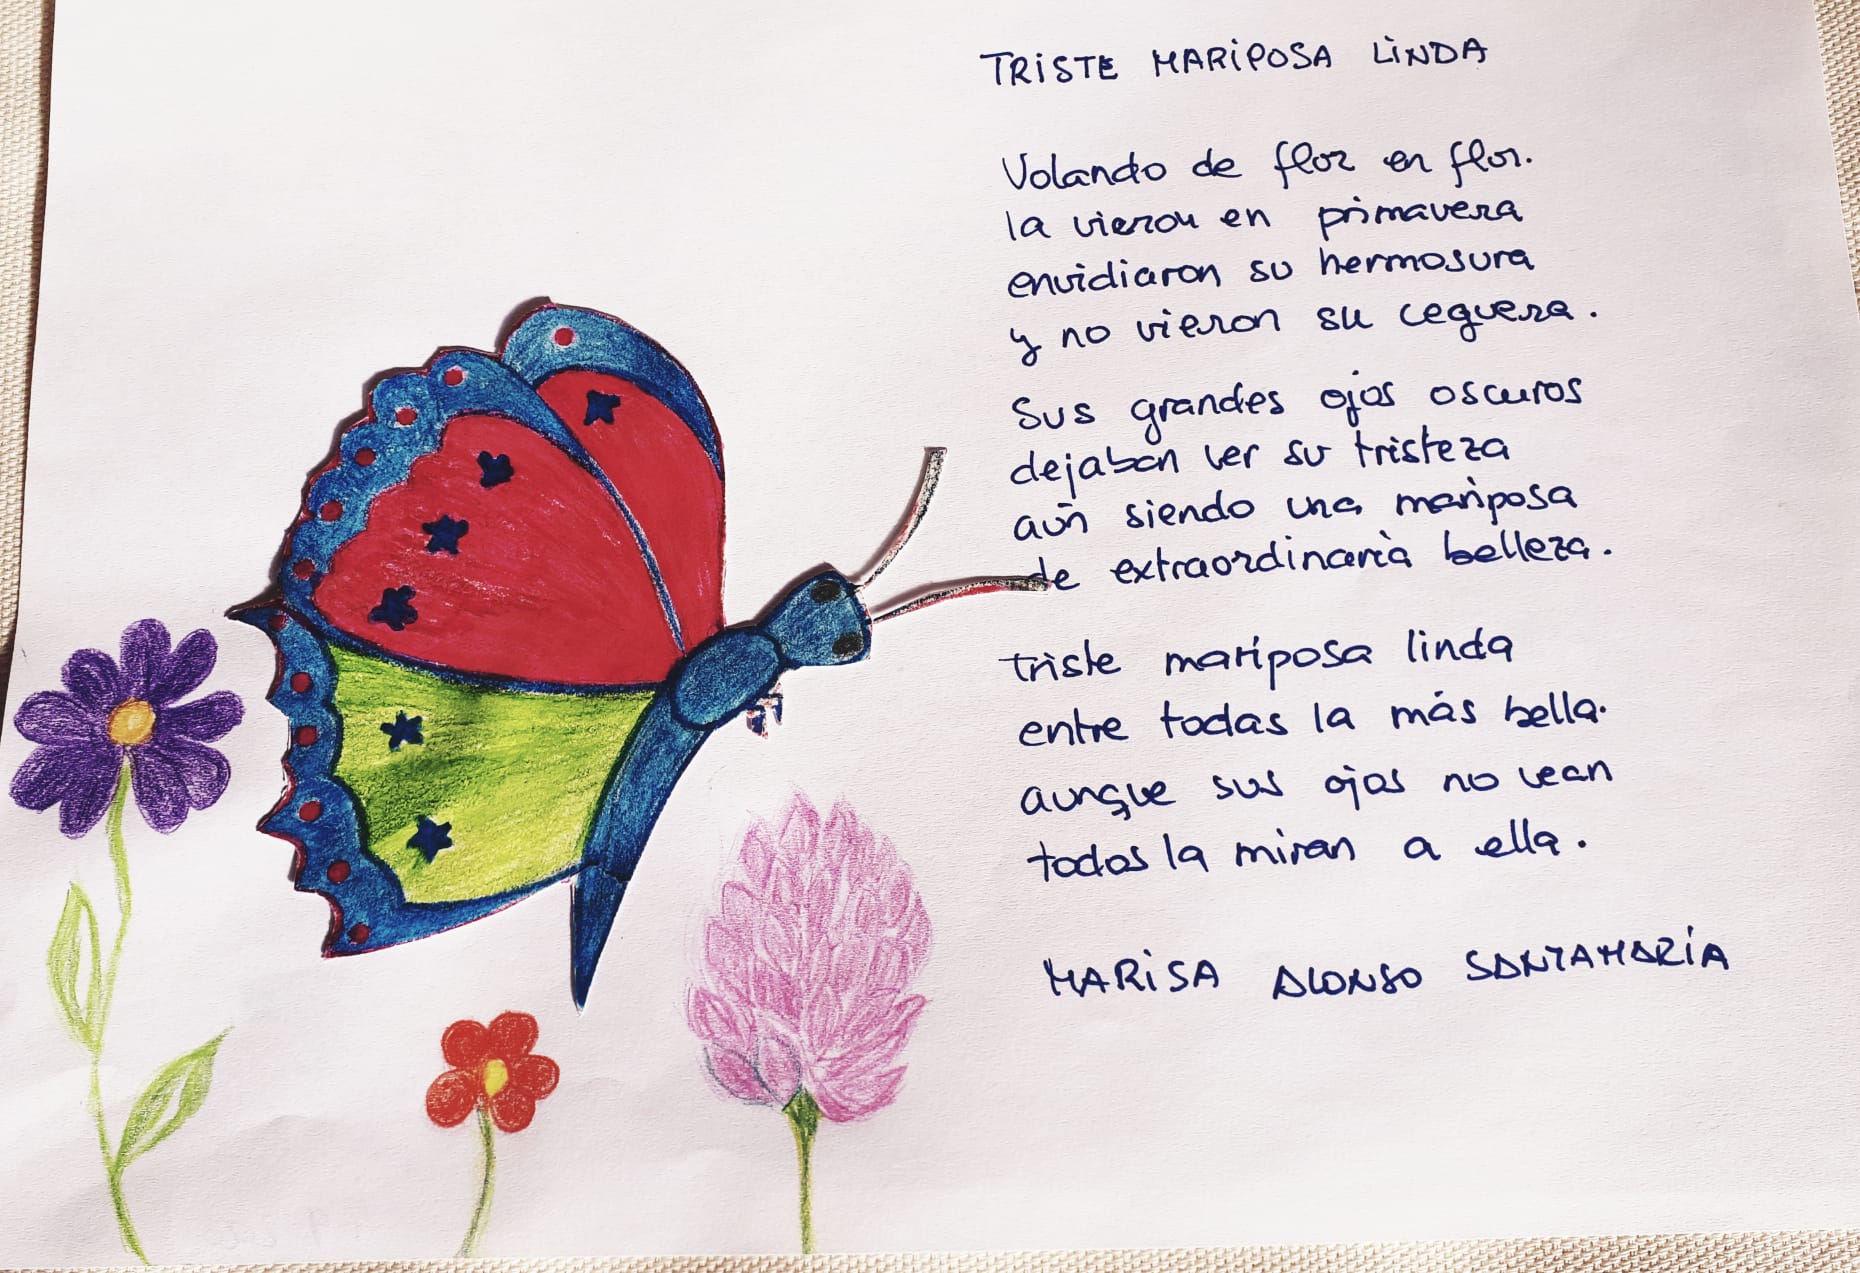 TRISTE MARIPOSA LINDA
Volando de flor en flor.
la vieron en primavera
envidiaron su hermosura
y no vieron su ceguera.
Sus grandes ojos oscuros
dejaban ver su tristeza
aún siendo una mariposa
de extraordinaria belleza.
triste mariposa linda
entre todas la más bella.
aunque sus ojos no vean
todos la miran a ella.
MARISA ALONSO SANTAMARÍA